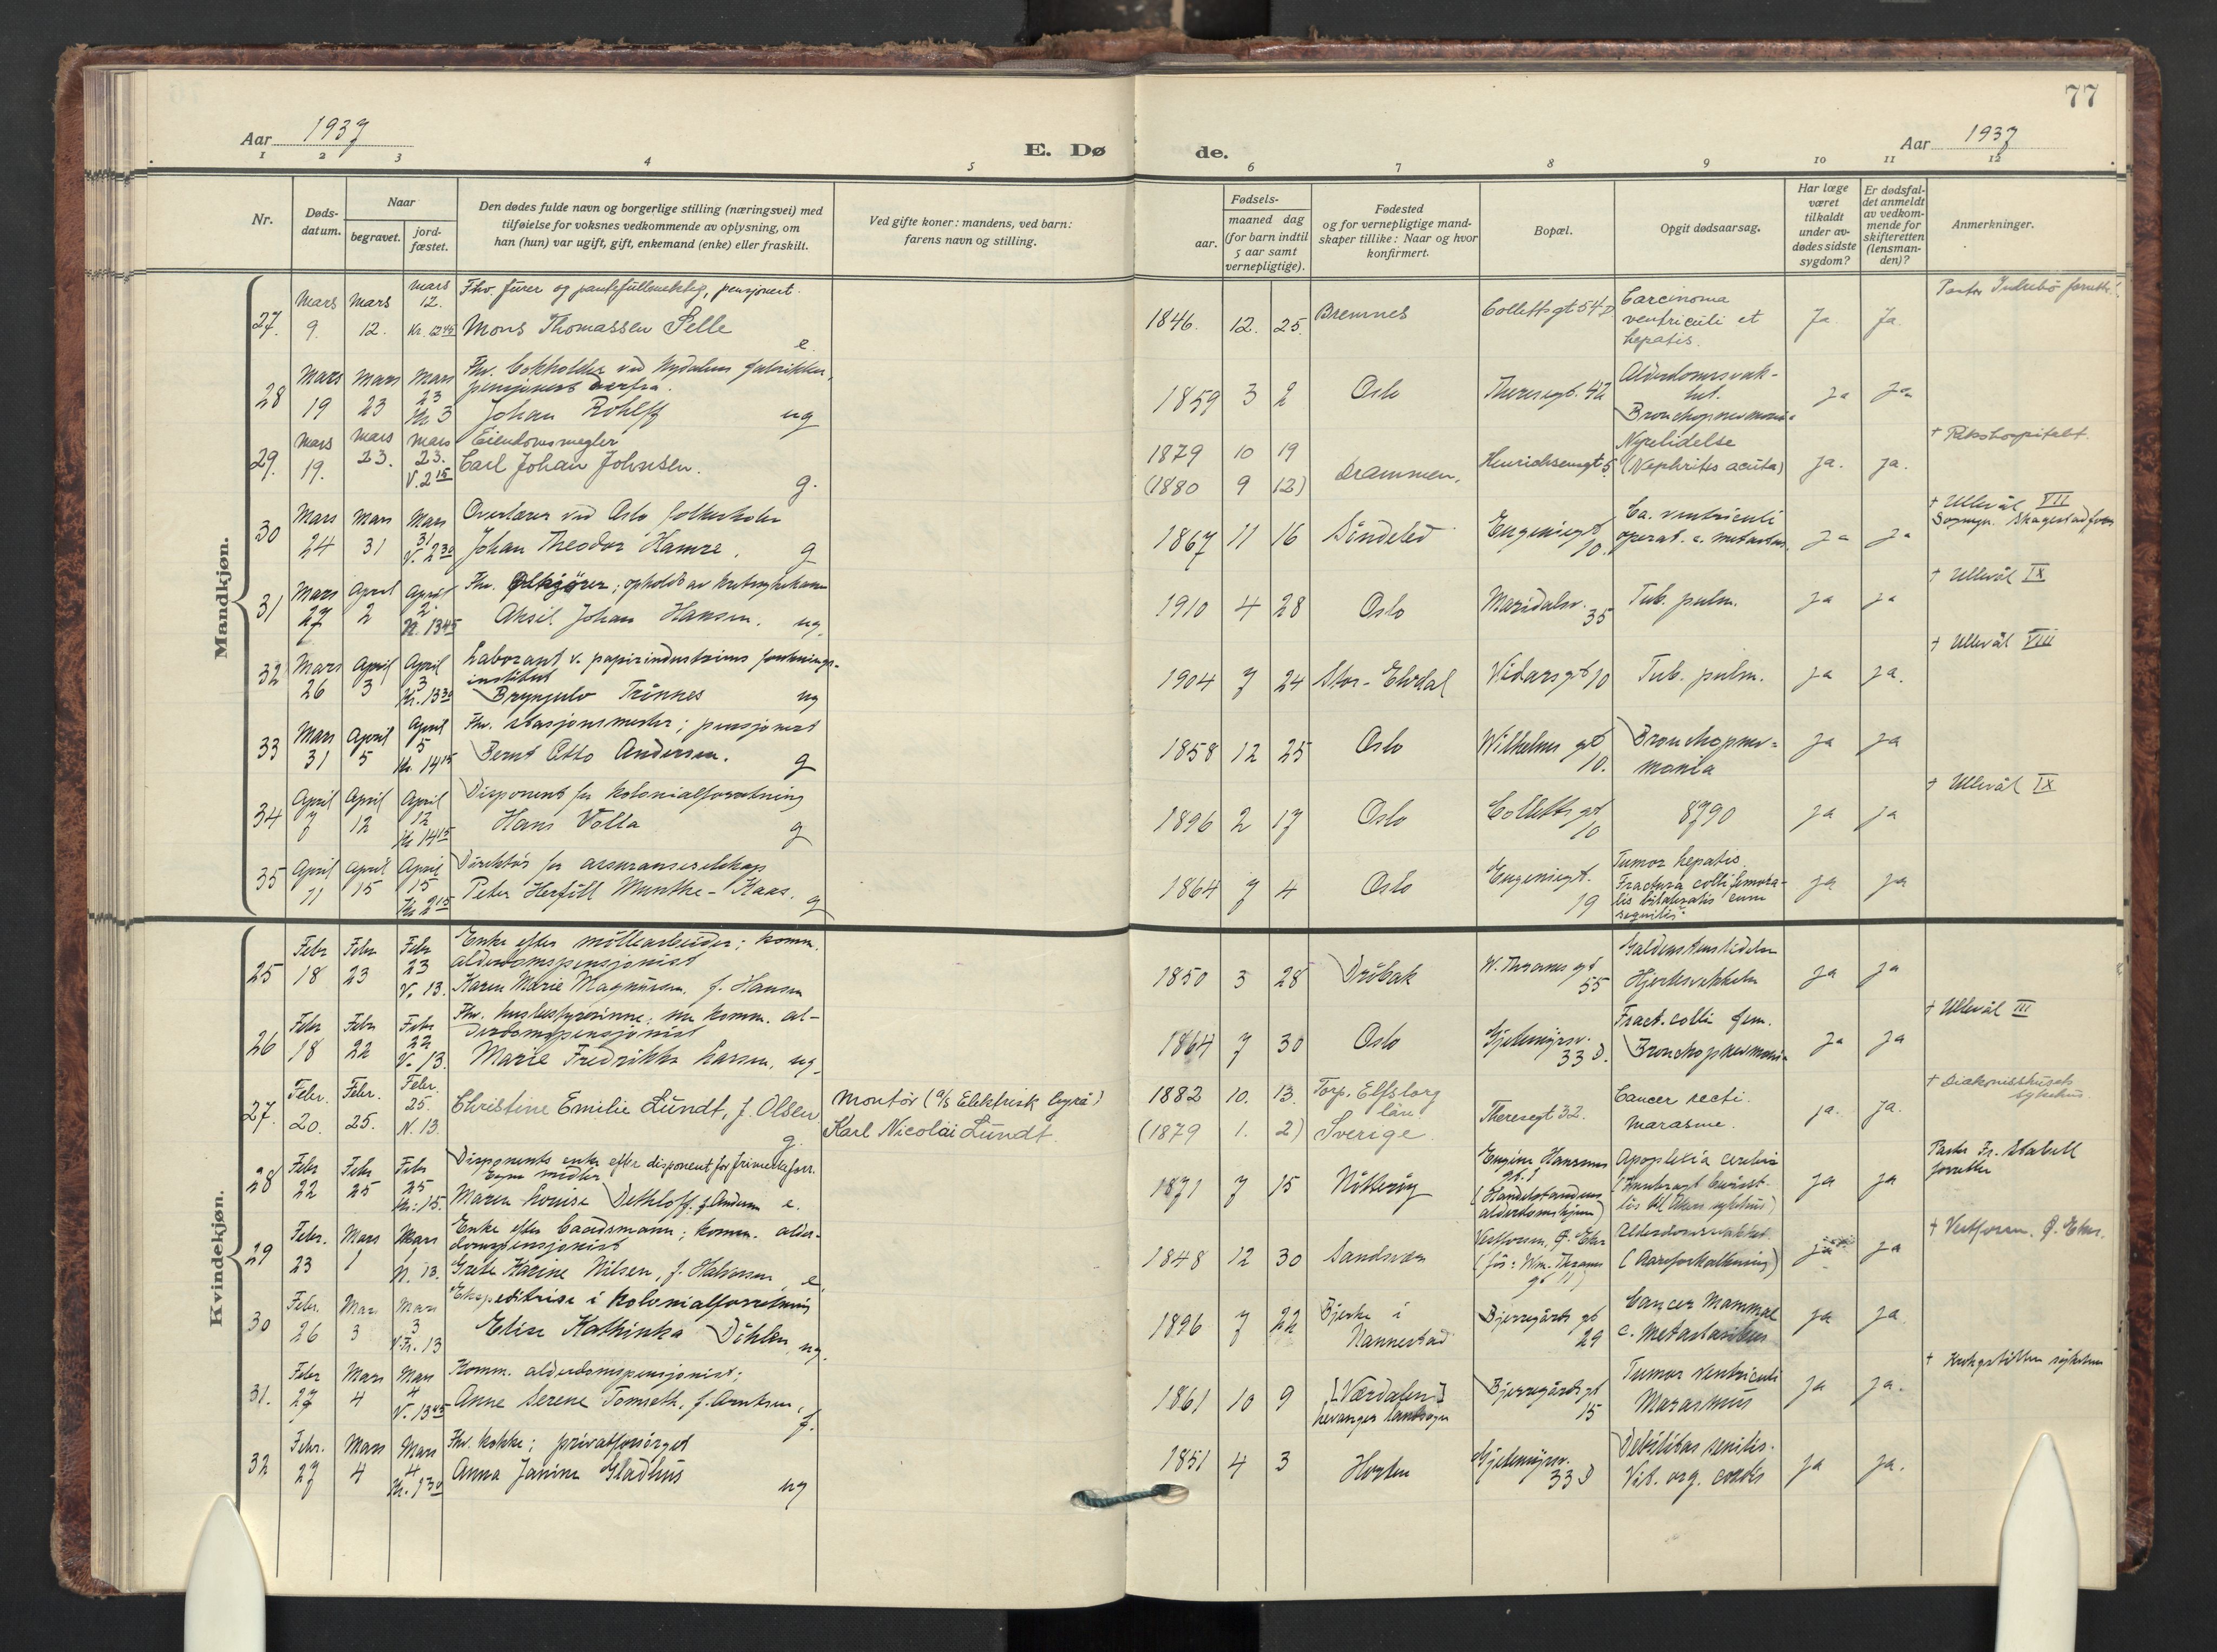 77
Aar 1937
E. Dø
de.
Aar 1937
1 2 3 4 5 6 7 8 9 10 11 12
Nr.
Døds-
datum.
Naar
begravet.
jord-
fæstet.
Den dødes fulde navn og borgerlige stilling (næringsvei) med
tilføielse for voksnes vedkommende av oplysning, om
han (hun) var ugift, gift, enkemand (enke) eller fraskilt.
Ved gifte koner: mandens, ved barn:
farens navn og stilling.
Fødsels-
aar.
maaned dag
(for barn indtil
5 aar samt
vernepligtige).
Fødested
og for vernepligtige mand-
skaper tillike: Naar og hvor
konfirmert.
Bopæl.
Opgit dødsaarsag.
Har læge
været
tilkaldt
under av-
dødes sidste
sygdom?
Er dødsfal-
det anmeldt
av vedkom-
mende for
skifteretten
(lensman-
den)?
Anmerkninger.
Mandkjøn.
27. Mars 9. Mars 12. Mars 12. Kl. 12 45
Fhv. furer og, pensjonert.
Mons Thomassen Selle e.
1846. 12. 25. Bremnes Collettsgt 54 D
Carcinoma
ventriculi et
hepatis.
Ja. Ja.
Pastor Indrebö
28 Mars 19 Mars 23 Mars 23 Kl 3
Fhv. ved Nydalens fabrikker,
pensjonert derfra.
Johan Rohlff ug
1859 3 2 Oslo Theresegt. 42
Alderdomssvak-
het.
Bronchopneumonia
ja ja
29. Mars 19. Mars 23. Mars 23. V. 2 15
Eiendomsmegler
Carl Johan Johnsen. g.
1879 10 19
(1880 9 12)
Drammen. Henrichsensgt 5.
Nyrelidelse
(Nephritis acuta)
ja. ja.
† Rikshospitalet.
30 Mars 24 Mars 31 Mars 31 V. 2 30
Overlærer ved Oslo folkeskoler
Johan Theodor Hamre. g
1867 11 16 Söndeled Eugeniegt 10.
Ca. ventriculi
operat. c. metastas.
ja ja
† Ullevål VII
Sognepr. Skagestad forr.
31 Mars 27 April 2 April 2. N. 13 45
Fhv. ; ophold av
Aksel Johan Hansen. ug.
1910 4 28 Oslo Maridalsv. 35
Tub. pulm.
ja ja
† Ullevål IX
32 Mars 26 April 3 April 3 Kl. 13 30
Laborant v. papirindustriens forsknings-
institut
Brynjulv Trönnes ug
1904 7 24 Stor-Elvdal Vidarsgt 10
Tub. pulm.
ja ja.
† Ullevål VIII
33 Mars 31 April 5 April 5 Kl. 14 15
Fhv. stasjonsmester; pensjonert
Bernt Otto Andersen. g
1858 12 25 Oslo Wilhelms gt 10.
Bronchopneu-
monia
ja ja
34 April 7 April 12 April 12 Kl 14 15
Disponent for kolonialforretning
Hans Volla g
1896 2 17 Oslo Colletts gt 10
8790
ja ja
† Ullevål IX
35 April 11 April 15 April 15 Kl 2 15
Direktör for assuranseselskap
Peter Herfill Munthe-Kaas. g
1864 7 4 Oslo Eugeniegt. 19
Tumor hepatis
Fractura colli femora-
lis bilateralis cum
sequelis
ja ja
Kvindekjøn.
25 Febr 18 Febr 23 Febr 23 V. 13.
Enke efter möllearbeider; komm.
alderdomspensjonist
Karen Marie Magnussen f. Hansen
1850 3 28 Dröbak W. Thranes gt 55
Galdenstenslidelse
Hjertesvekkelse
ja ja
26 Febr 18 Febr 22 Febr 22 V. 13.
Fhv. husbestyrerinne; nu komm. al-
derdomspensjonist
Marie Fredrikke Larsen, ug.
1864 7 30 Oslo Gjetemyrsv. 33 D.
Fract. colli fem.
Bronchopneumonia
ja ja
† Ullevål III
27. Febr. 20. Febr. 25. Febr. 25. N. 13.
Christine Emilie Lundt, f. Olsen g.
Montör (A/S Elektrisk byrå)
Karl Nicolai Lundt.
1882 10. 13.
(1879 1. 2)
Torp, Elfsborg
län
Sverige.
Theresegt 32.
Cancer recti.
Marasme.
ja. ja.
† Diakonissehusets
sykehus
28 Febr 22 Febr 25 Febr 25 Kl. 15.
Disponents enke efter disponent for frimerkeforr.
Egne midler
Maren Louise Dethloff f. Andersen e.
1871 7 15 Nötteröy
Eugenie Hansens
gt. 1
(Handelstandens
alderdomshjem)
Apoplexia cerebri
ja ja
Pastor Fr. Stabell
forretter
29 Febr. 23 Mars 1 Mars 1 N. 13.
Enke efter baadsmann; komm. alder-
domspensjonist
Grete Karine Nilsen, f. Halvorsen e.
1848 12 30 Sandsvær
(för: Wm. Thranes
gt 11)
Alderdomssvakhet
(Aareforkalkning)
ja ja
30 Febr. 26 Mars 3 Mars 3 V. Fr. 13
Ekspeditrise i kolonialforretning
Elise Kathinka Döhlen, ug.
1896 7 22
Bjerke i
Nannestad
Bjerregårds gt 29
Cancer Mammae
c. Metastasibus
ja ja
31. Febr 27 Mars 4 Mars 4 V. 13 45
Komm. alderdomspensjonist;
Anne Serene Tomseth, f. Arntsen, f.
1861 10 9
[Værdalen]
Levanger landsogn
Bjerregårdsgt 15
Tumor ventriculi
Marasmus
ja ja.
32 Febr. 27 Mars 4 Mars 4 Kl. 1 30
Fhv. kokke; privatforsörget
Anna Janine Gladhus ug
1851 4 3 Horten Gjetemyrsv. 33 D
Debilitas senilis.
Vit. org. cordis
ja ja.